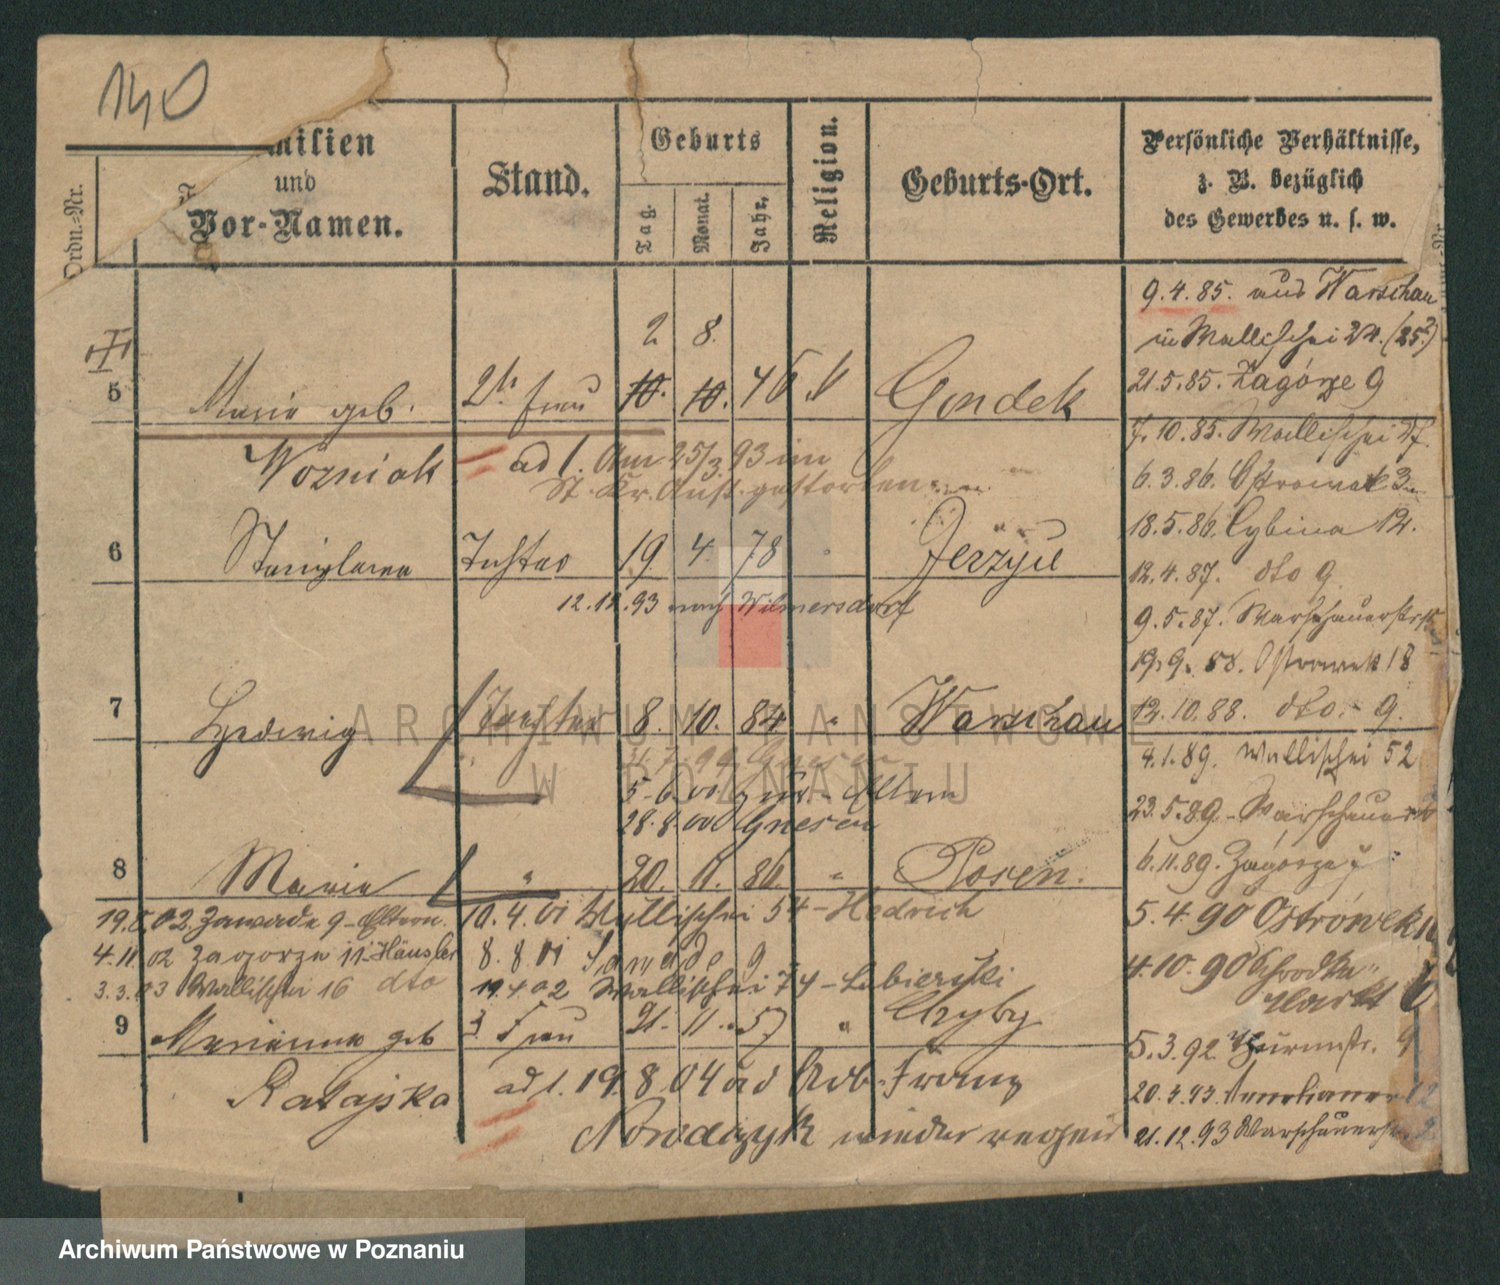 140
Ordn.-Nr.
milien
und
Vor-Namen.
Stand.
Geburts
Tag.
Monat.
Jahr.
Religion.
Geburts-Ort.
Persönliche Verhältnisse,
z. B. bezüglich
des Gewerbes u. s. w.
9.4.85. aus Warschau
in Wallischei 24. (25?)
2 8.
5 Marie geb. 2te Frau 10. 10. 46 Gondek
21.5.85. Zagórze 9
Wozniak ad 1. Am 25/3.93 im
St. Kr. Anst. gestorben
7.10.85. Wallischei 27.
6.3.86. Ostrowek 3
6 Stanislawa Tochter 19 4. 78 Jerzyce
18.5.86. Cybina 12.
12.4.87. dto 9
12.12.93 nach Wilmersdorf
9.5.87. Warschauerstr
19.9.88. Ostrowek 18
7 Hedwig Tochter 8. 10. 84 " Warschau
12.10.88. dto. - 9.
4.1.89. Wallischei 52
5.6.00 zur. Eltern
28.8.00 Gnesen
23.5.89. Warschauer
8 Marie " 20. 11. 86. " Posen.
6.11.89. Zagorze 7
19.5.02. Zawade 9 - Eltern. 10.4.01 Wallischei 54 - Hedrich
5.4.90 Ostrówek
4.11.02 Zagorze 11 - Häusler 8.8.01 Zawade 9
3.3.03 Wallischei 16 dto 19.4.02 Wallischei 74 -
4.10.90 Schrodka
Markt
9 Marianna geb 3 Frau 21. 11. 57 " Chyby
5.3.92. Thurmstr. 9
Ratajska ad 1. 19.8.04 ad Arb. Franz
20.3.93
Nowaczyk wieder
21.12.93 Warschauerstr
ARCHIWUM PAŃSTWOWE
W POZNANIU
Archiwum Państwowe w Poznaniu